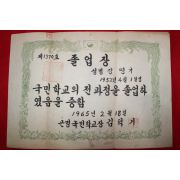 제1370호
졸업장
성명 김영기
1952년 4월 1일생
국민학교의 전과정을 졸업하
였음을 증함
1965년 2월 18일
국민학교장